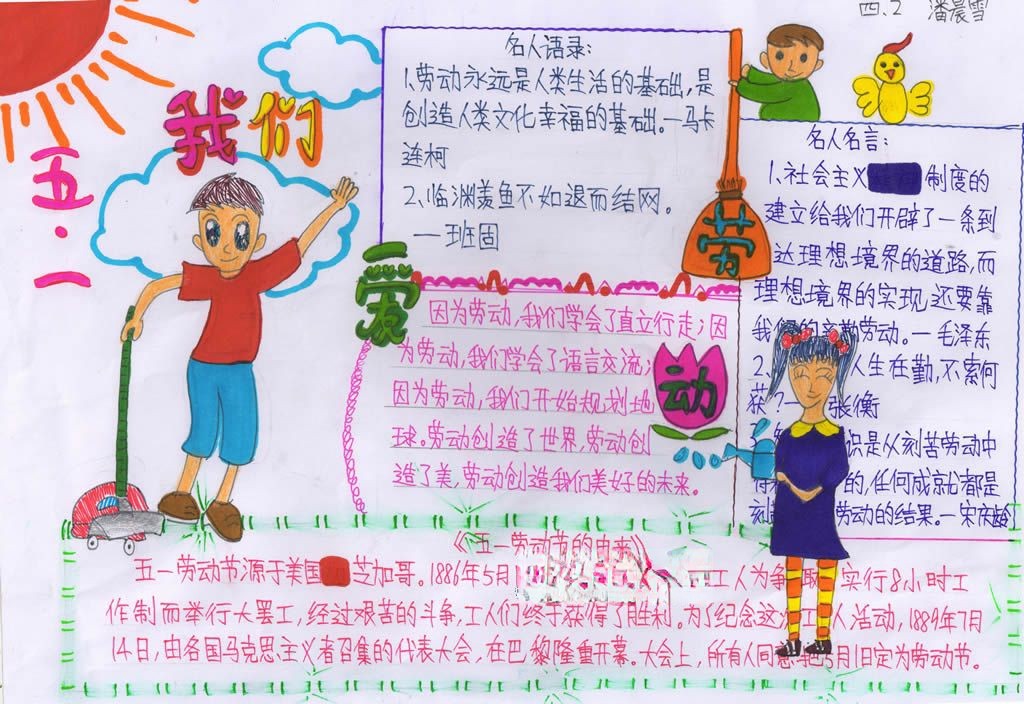 四、2 潘晨雪
五·一
我们
爱
劳
动
名人语录:
1.劳动永远是人类生活的基础,是
创造人类文化幸福的基础。—马卡
连柯
2、临渊羡鱼不如退而结网。
—班固
因为劳动,我们学会了直立行走;因
为劳动,我们学会了语言交流;
因为劳动,我们开始规划地
球。劳动创造了世界,劳动创
造了美,劳动创造我们美好的未来。
名人名言:
1、社会主义 制度的
建立给我们开辟了一条到
达理想境界的道路,而
理想境界的实现,还要靠
我们的辛勤劳动。—毛泽东
2、 人生在勤,不索何
获?— 张衡
识是从刻苦劳动中
的,任何成就都是
刻 劳动的结果。—宋庆龄
《五一劳动节的由来》
五一劳动节源于美国 芝加哥。1886年5月 工人为争取 实行8小时工
作制而举行大罢工,经过艰苦的斗争,工人们终于获得了胜利。为了纪念这次 人活动,1889年7月
14日,由各国马克思主义者召集的代表大会,在巴黎隆重开幕。大会上,所有人同意把5月1日定为劳动节。